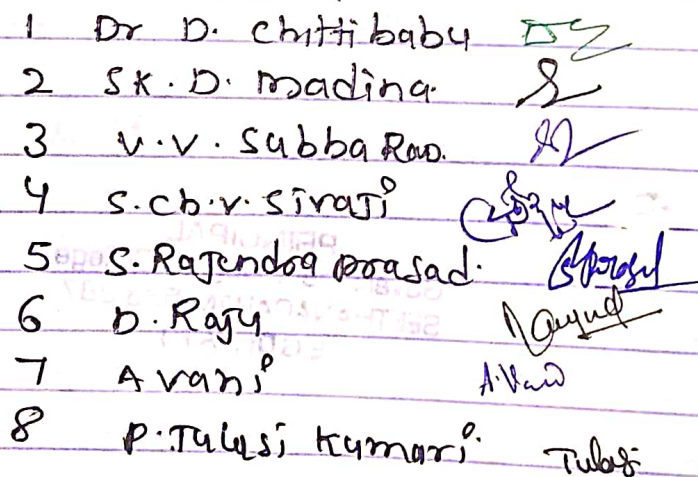 1 Dr D. Chittibabu
2 SK. D. Madina.
3 V.V. Subba Rao.
4 S.Ch.V. Sivaji
5 S. Rajendra prasad. SPrasad
6 D. Raju
7 A vani A.Vani
8 P. Tulasi Kumari. Tulasi